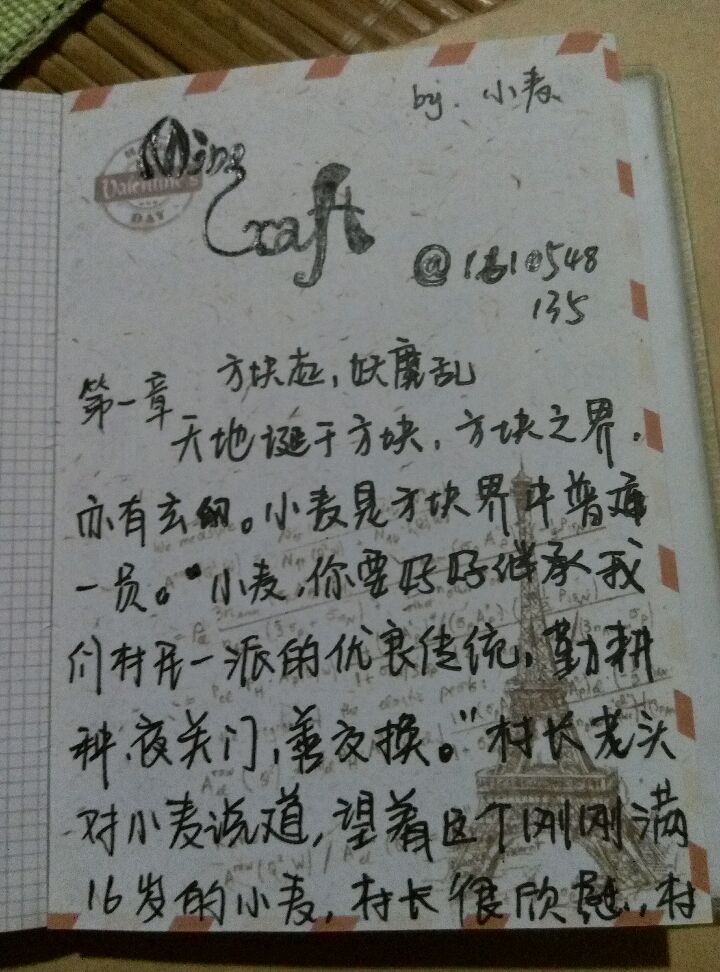 by. 小麦
Mine
Craft
Valentine's
DAY
135
第一章 方块起,妖魔乱
天地诞于方块,方块之界,
亦有玄的。小麦是方块界中普通
一员。“小麦,你要好好继承我
们村民一派的优良传统,勤耕
种,夜关门,善交换。”村长老头
对小麦说道,望着这个刚刚满
16岁的小麦,村长很欣慰,村